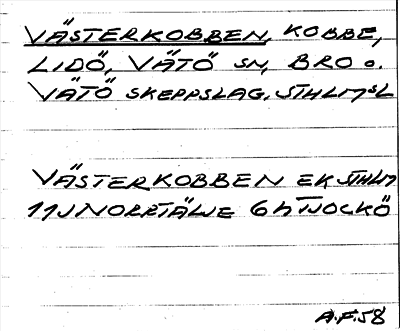 VÄSTERKOBBEN, KOBBE,
LIDÖ, VÄTÖ SN, BRO O.
VÄTÖ SKEPPSLAG, STHLMSL
VÄSTERKOBBEN EK STHLM
11J NORRTÄLJE 6h TJOCKÖ
A.F.58